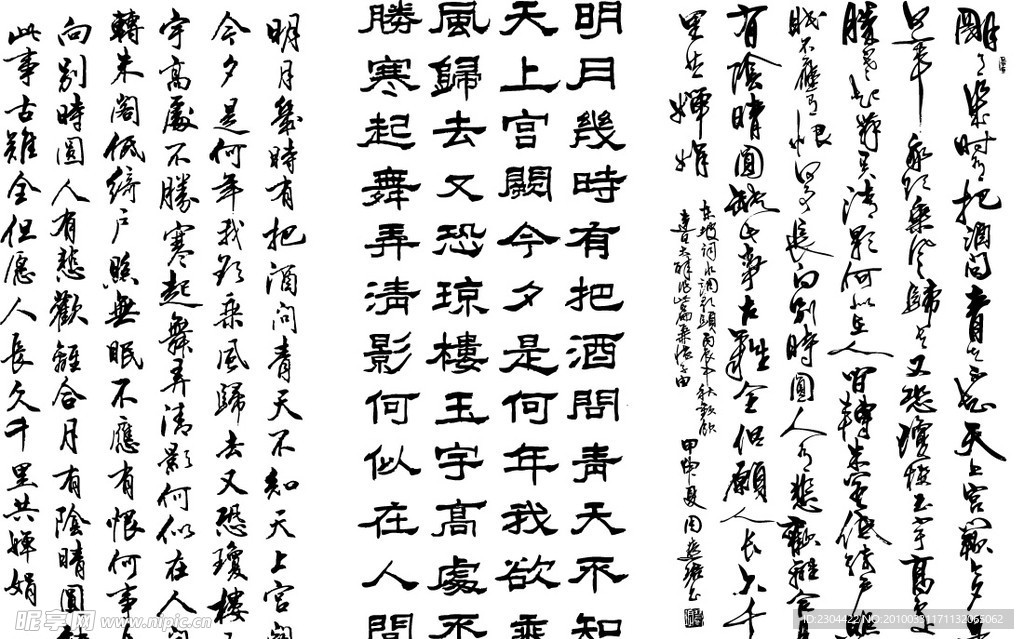 明月幾時有把酒問青天不知天上宮闕今夕
年我欲乘風歸去又恐瓊樓玉宇高處
勝寒起舞弄清影何似在人間轉朱閣低綺戶照
眠不應有恨何事長向別時圓人有悲歡離合月
有陰晴圓缺此事古難全但願人長久千
里共嬋娟
東坡詞水調歌頭丙辰中秋歡飲
達旦大醉作此篇兼懷子由
甲申夏周
明月幾時有把酒問青天不知
天上宮闕今夕是何年我欲乘
風歸去又恐琼樓玉宇高處不
勝寒起舞弄清影何似在人間
明月幾時有把酒問青天不知天上宮闕
今夕是何年我欲乘風歸去又恐瓊樓玉
宇高處不勝寒起舞弄清影何似在人間
轉朱閣低綺戶照無眠不應有恨何事長
向別時圓人有悲歡離合月有陰晴圓缺
此事古難全但願人長久千里共嬋娟
昵享网 www.nipic.cn
ID:2304422 NO:20100331171132065062